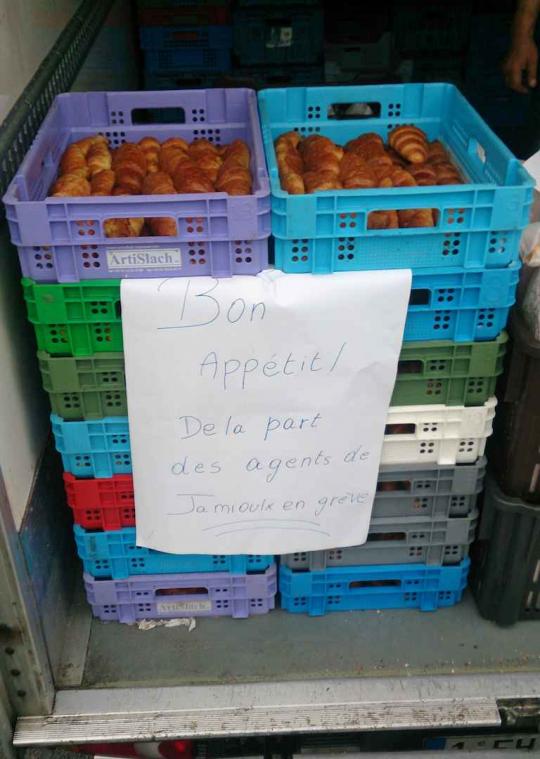 ArtiSlach
Bon
Appétit!
De la part
des agents de
Jamioulx en grève
ArtiSlach